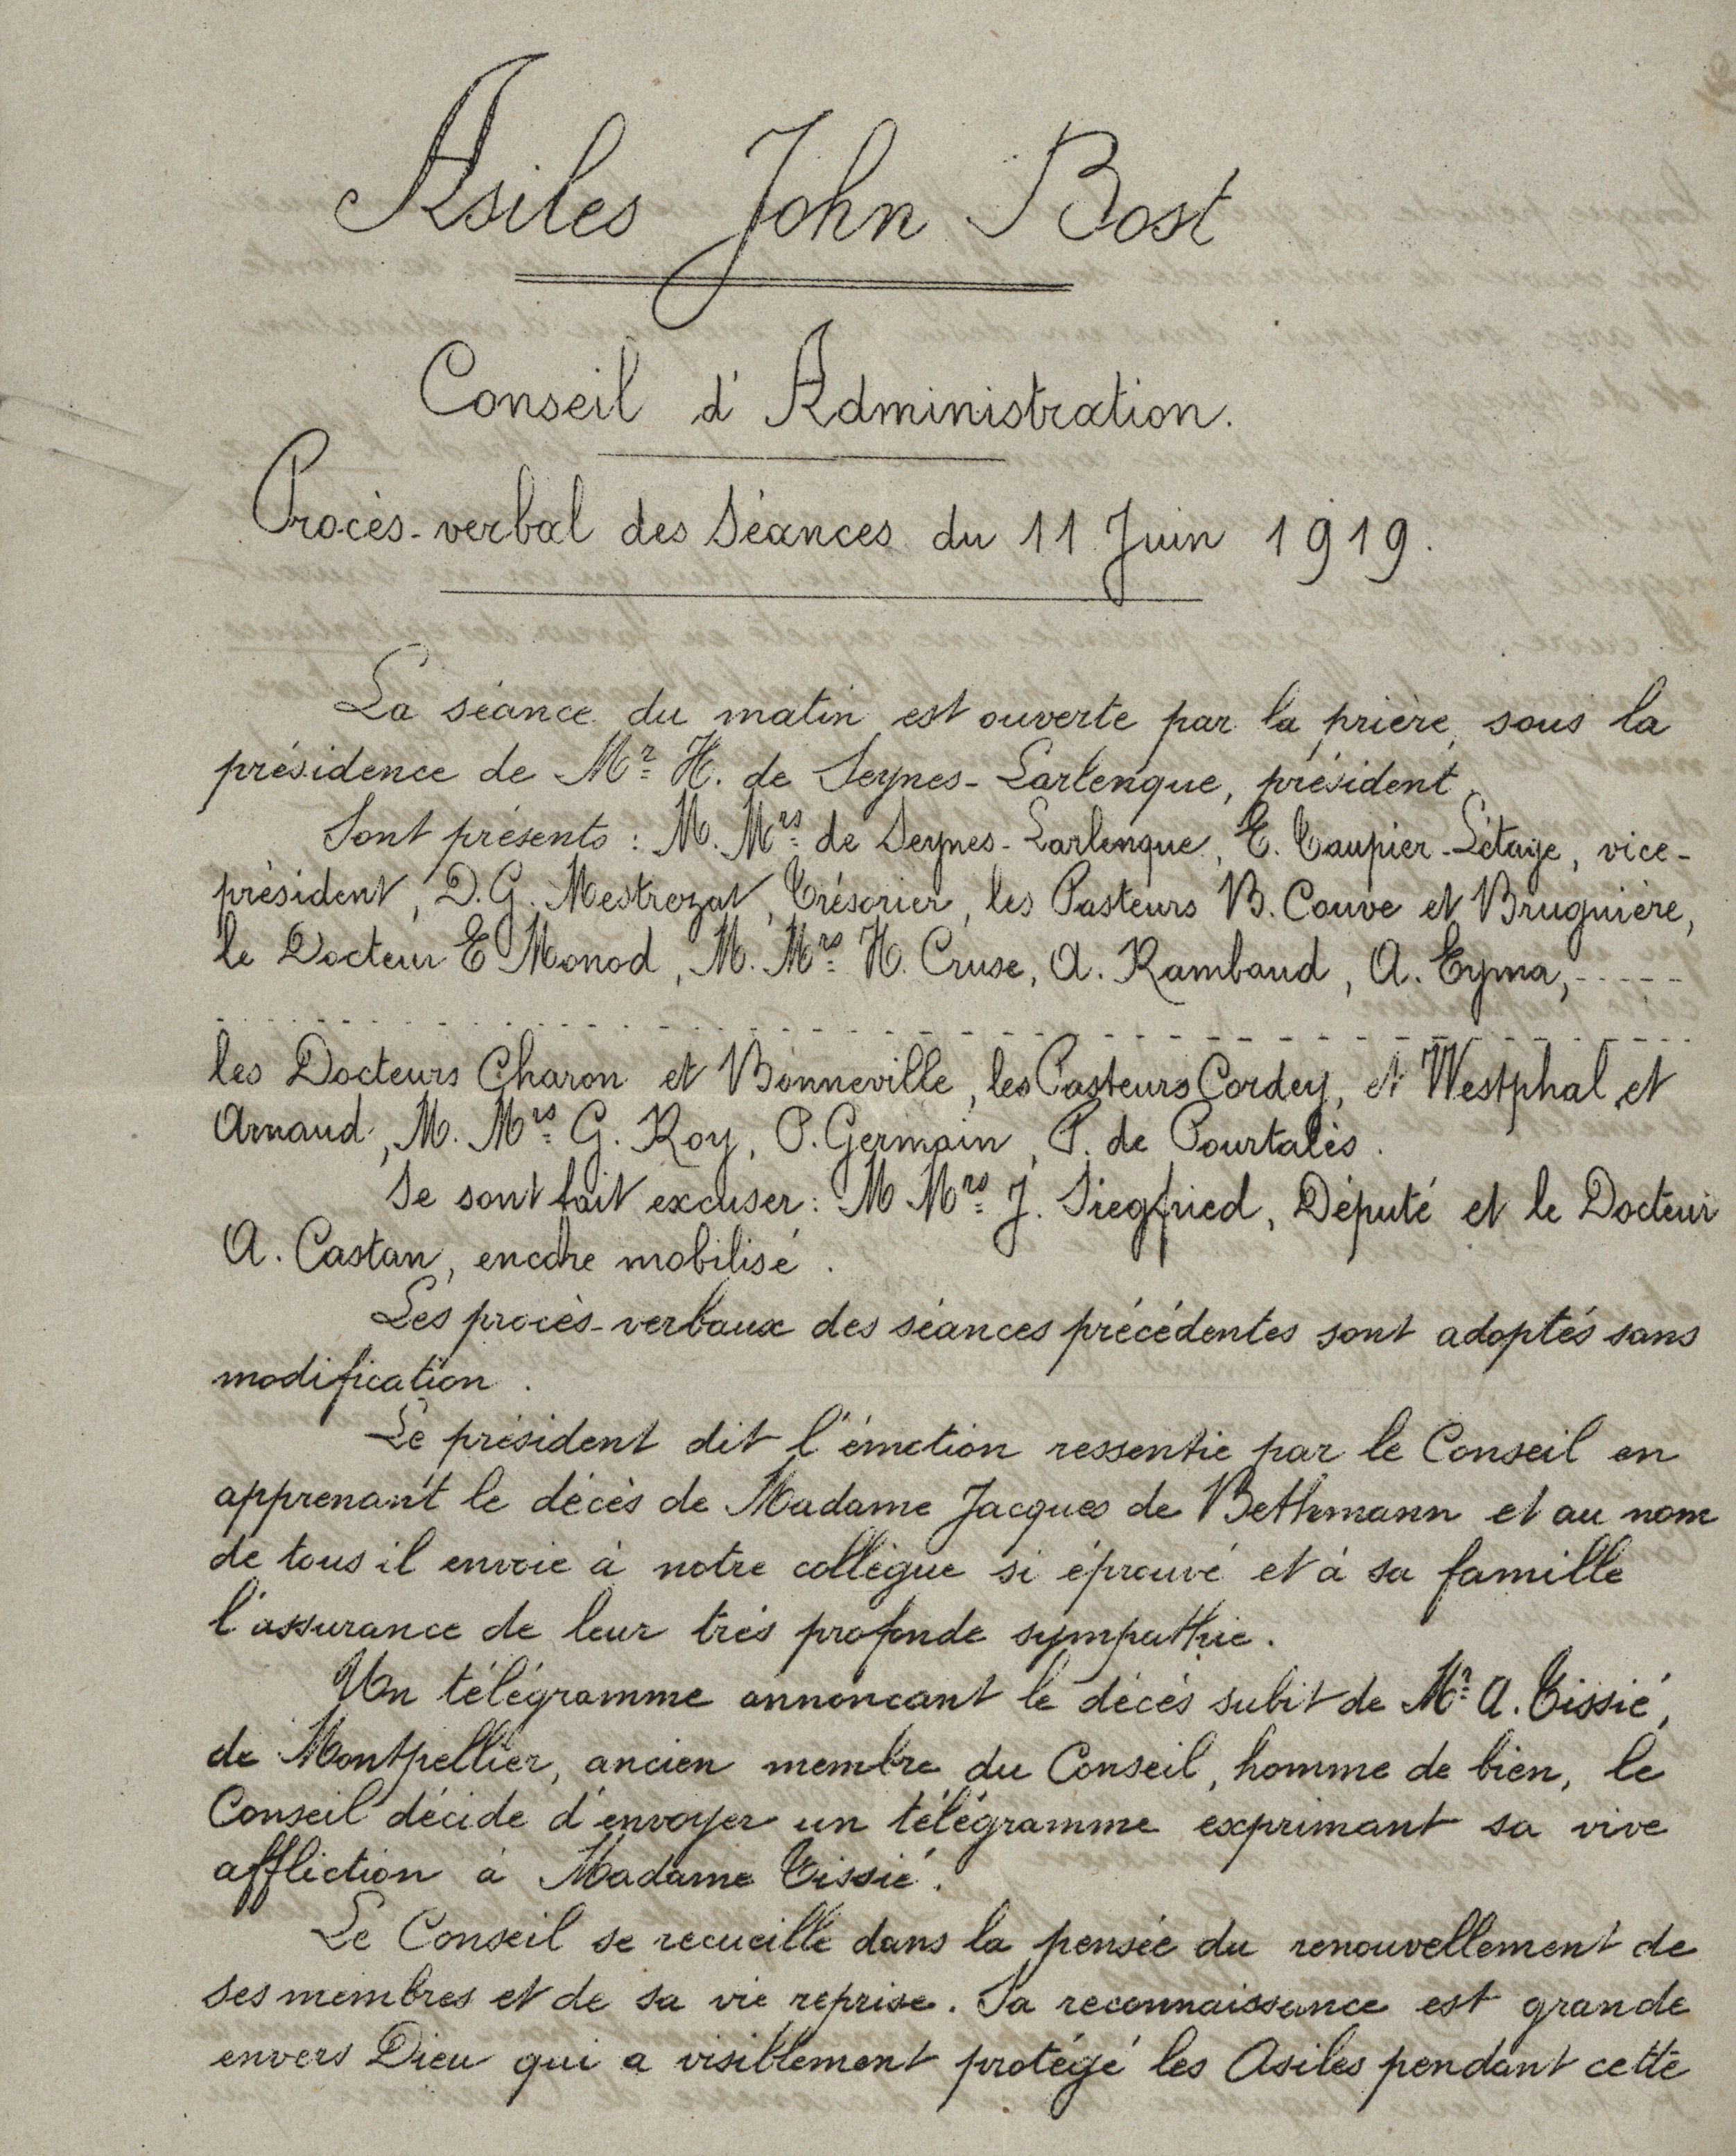 Asiles John Bost
Conseil d'Administration.
Procès-verbal des Séances du 11 Juin 1919.
La séance du matin est ouverte par la prière, sous la
présidence de Mr H. de Seynes-Larlenque, président.
Sont présents : M. Mrs de Seynes-Larlenque, E. Taupier-Létage, vice-
président, D. G. Mestrezat, Trésorier, les Pasteurs B. Couve et Bruguière,
le Docteur E Monod, M. Mrs H. Cruse, A. Rambaud, A. Eyma, -----
les Docteurs Charon et Bonneville, les Pasteurs Cordey, et Westphal et
Arnaud, M. Mrs G. Roy, P. Germain, P. de Pourtalès.
Se sont fait excuser : M Mrs J. Siegfried, Député et le Docteur
A. Castan, encore mobilisé.
Les procès-verbaux des séances précédentes sont adoptés sans
modification.
Le président dit l'émotion ressentie par le Conseil en
apprenant le décès de Madame Jacques de Bethmann et au nom
de tous il envoie à notre collègue si éprouvé et à sa famille
l'assurance de leur très profonde sympathie.
Un télégramme annoncant le décès subit de Mr A. Tissié,
de Montpellier, ancien membre du Conseil, homme de bien, le
Conseil décide d'envoyer un télégramme exprimant sa vive
affliction à Madame Tissié.
Le Conseil se recueille dans la pensée du renouvellement de
ses membres et de sa vie reprise. Sa reconnaissance est grande
envers Dieu qui a visiblement protégé les Asiles pendant cette